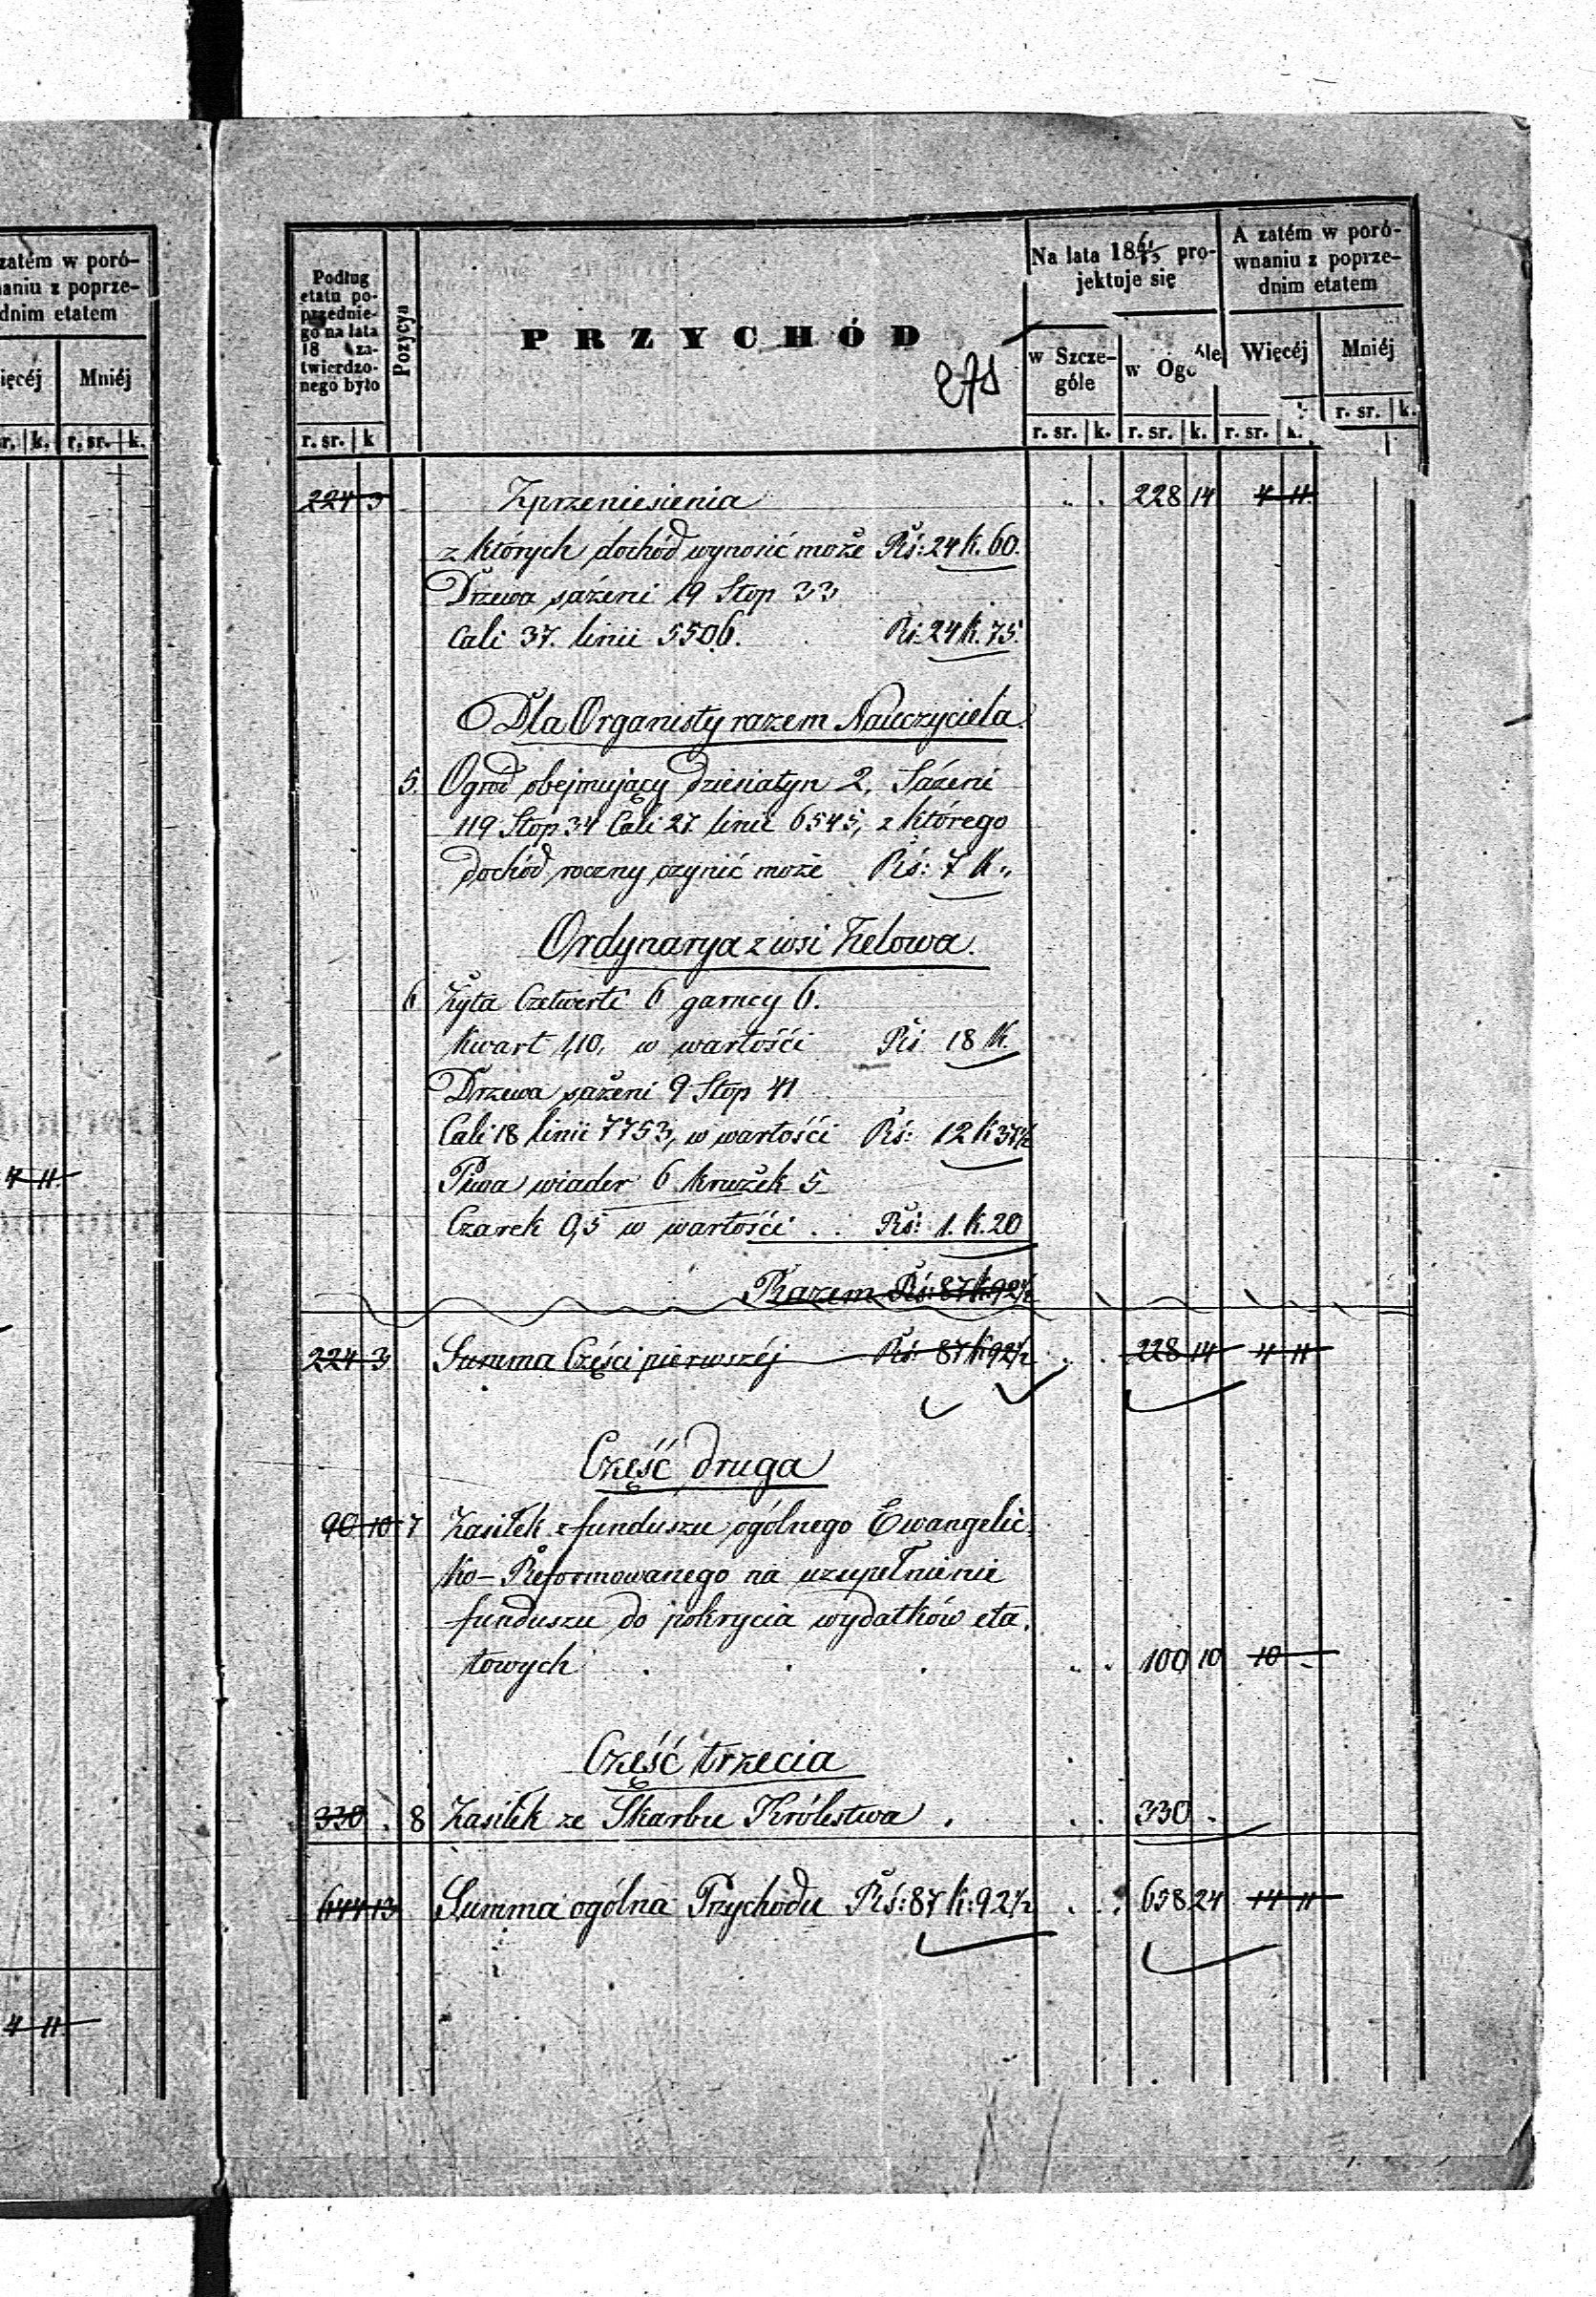 zatém w poró-
naniu z poprze-
dnim etatem
ięcéj Mniéj
r. k. r. sr. k.
4 11.
4 11.
Podług etatu poprzedniego na lata 18 zatwierdzonego było
Pozycya
PRZYCHÓD
Na lata 1861/65 pro-
jektuje się
A zatém w poró-
wnaniu z poprze-
dnim etatem
w Szcze-
góle
w Ogóle
Więcéj Mniéj
r. sr. k
r. sr. k. r. sr. k. r. sr. k. r. sr. k.
224 3 Zprzeniesienia . . 228 14 4 11.
z których dochód wynosić może Rś: 24 k. 60.
Drzewa sążeni 19 Stop 33
Cali 37. linii 5506. Rś: 24 k. 75.
Dla Organisty razem Nauczyciela
5. Ogród obejmujący dziesiatyn 2, Sążeni
119 Stop 34 Cali 27 linii 6545, z którego
dochód roczny czynić może Rś: 7 k „
Ordynarya z wsi Zelowa.
6 Żyta Czetwerti 6 garncy 6.
kwart 1,10, w wartości Rś 18 k.
Drzewa sążeni 9 Stop 41
Cali 18 linii 7753, w wartości Rś: 12 k 37½
Piwa wiader 6 krużek 5
Czarek 0,5 w wartości . . Rś: 1. k. 20
Razem Rś: 87 k. 92½
224 3 Summa Części pierwszéj Rś: 87 k 92½ . . 228 14 4 11
Część druga
90 10 7 Zasiłek z funduszu ogólnego Ewangelic
ko-Reformowanego na uzupełnienie
funduszu do pokrycia wydatków eta.
towych . . . . . 100 10 10 -
Część trzecia
330 . 8 Zasiłek ze Skarbu Królestwa . . . 330 .
644 13 Summa ogólna Przychodu Rś: 87 k: 92½ . . 658 24 14 11